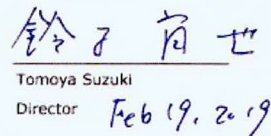 鈴木
Tomoya Suzuki
Director Feb 19, 2019